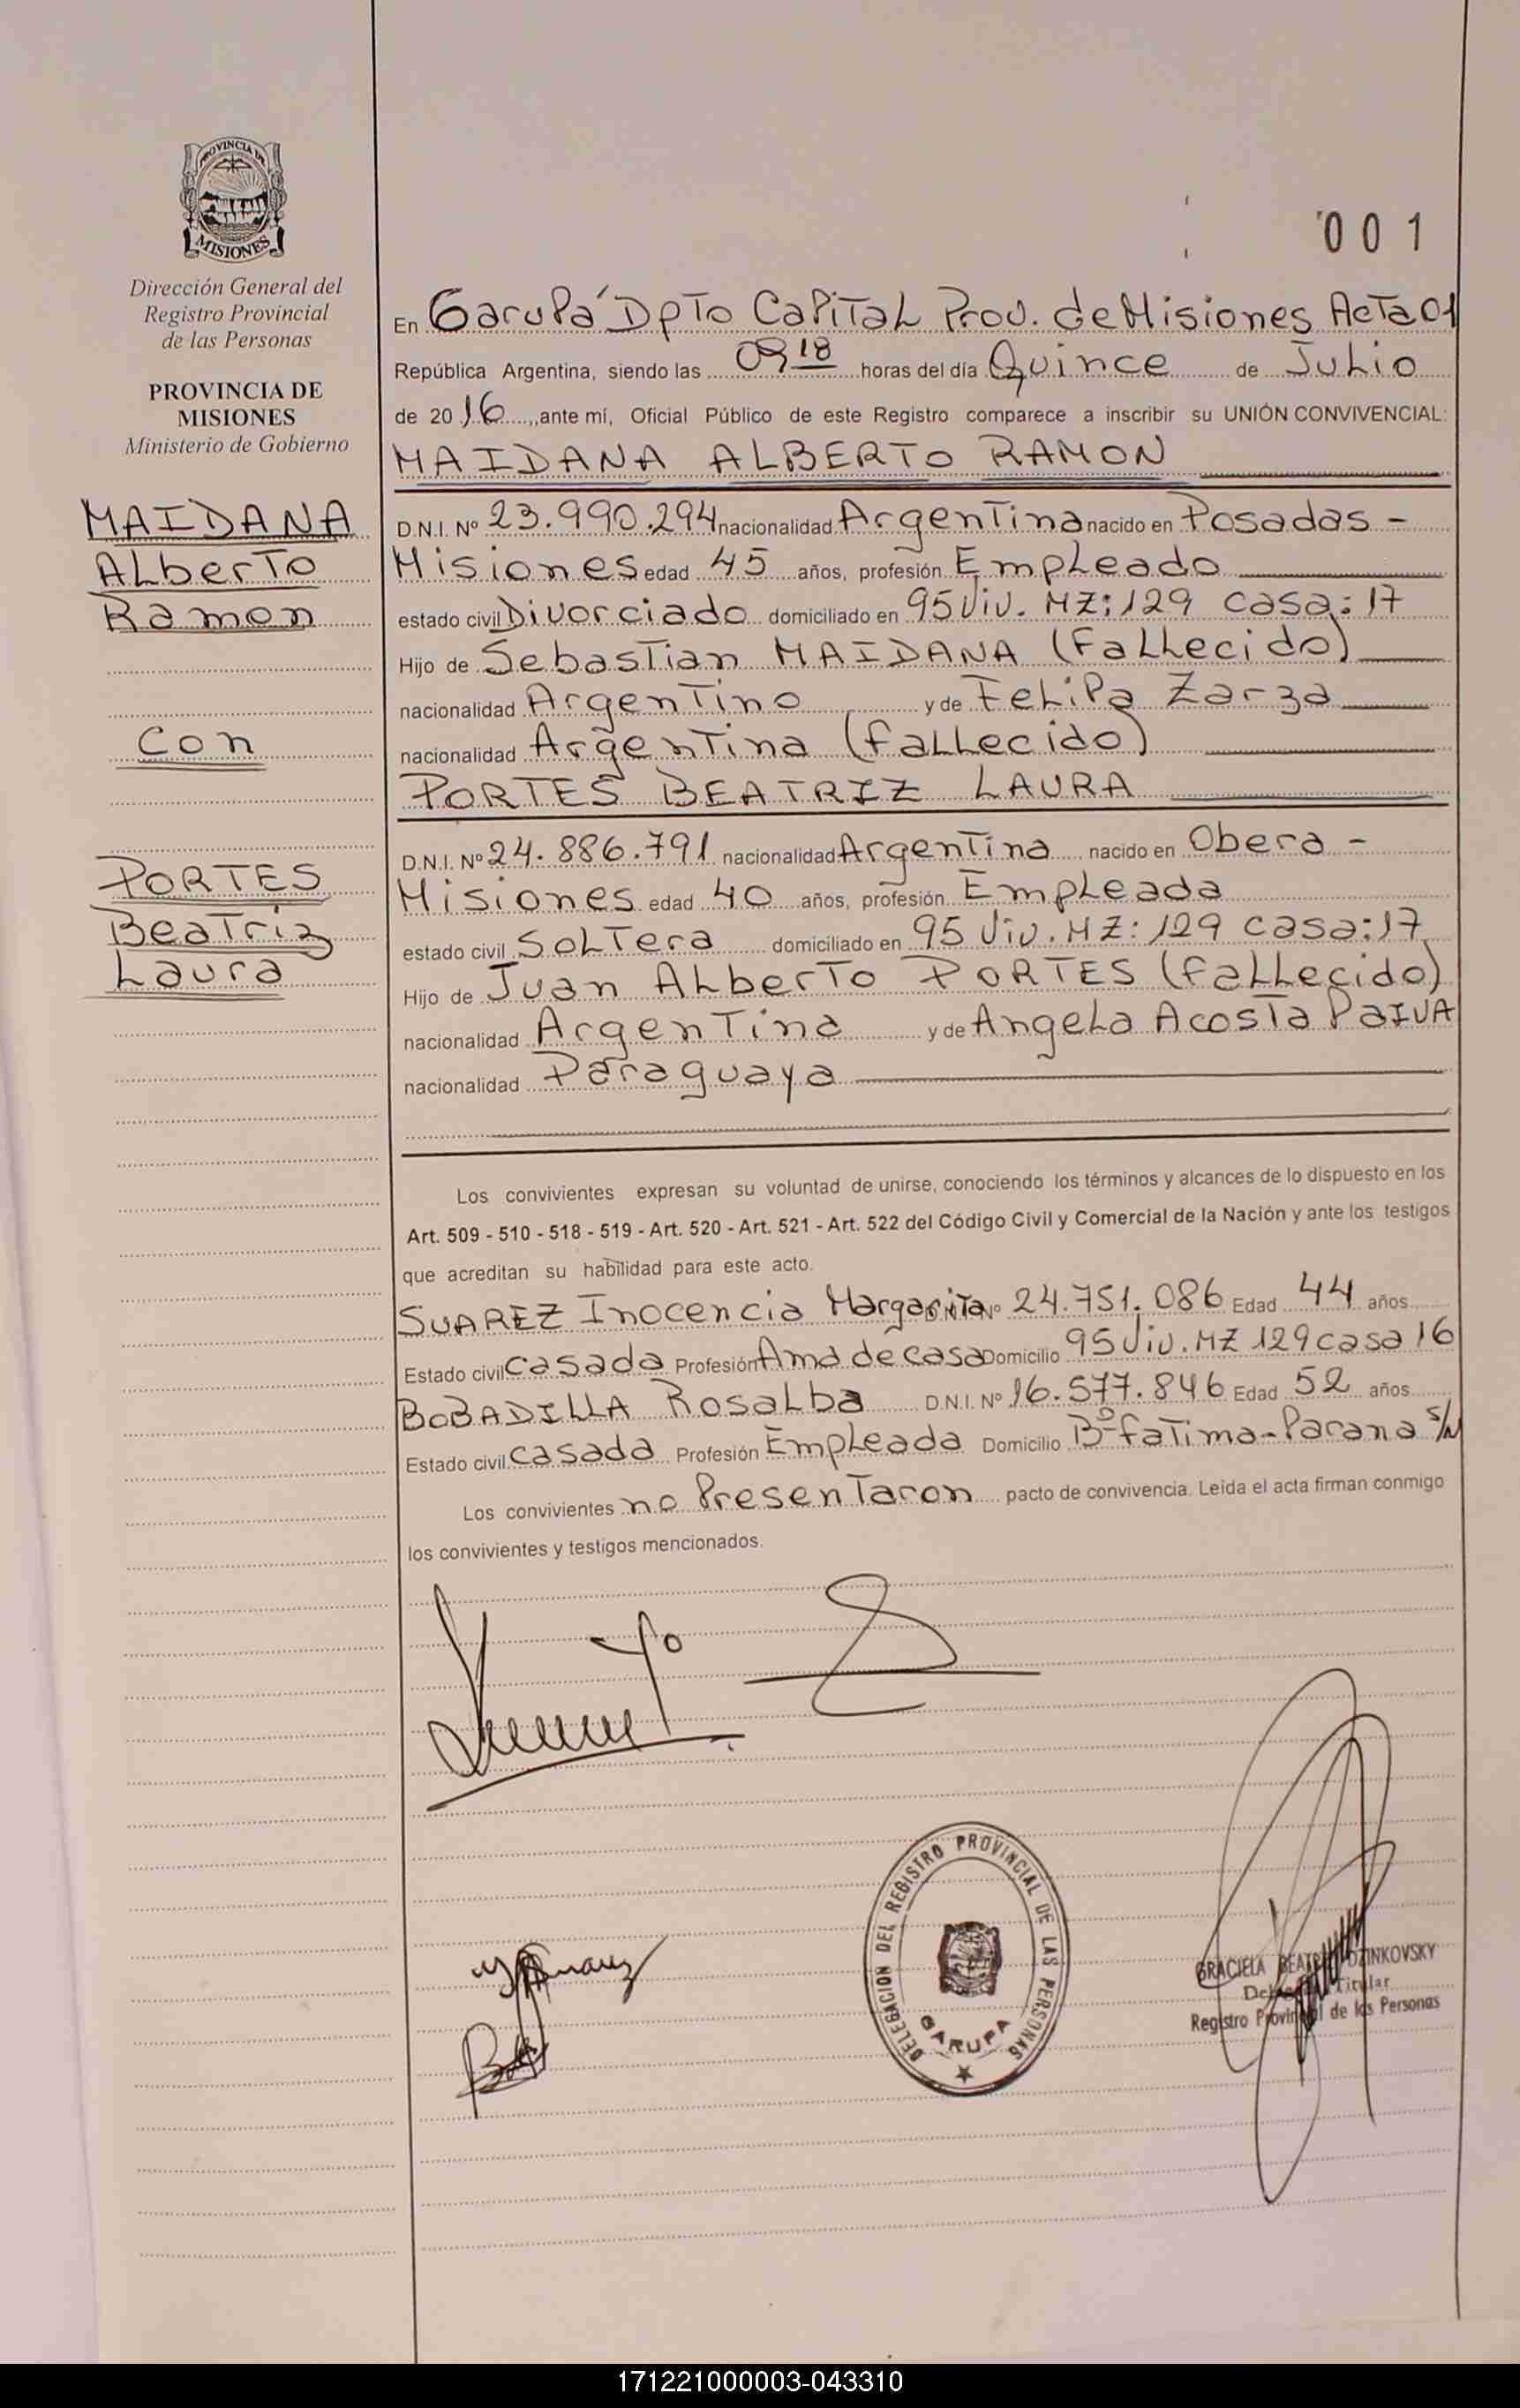 PROVINCIA DE
MISIONES
Dirección General del
Registro Provincial
de las Personas
PROVINCIA DE
MISIONES
Ministerio de Gobierno
MAIDANA
Alberto
Ramon
con
PORTES
Beatriz
Laura
001
En Garupá Dpto Capital Prov. de Misiones Acta 01
República Argentina, siendo las 09 18 horas del día Quince de Julio
de 20 16, ante mí, Oficial Público de este Registro comparece a inscribir su UNIÓN CONVIVENCIAL:
MAIDANA ALBERTO RAMON
D.N.I. Nº 23.990.294 nacionalidad Argentina nacido en Posadas -
Misiones edad 45 años, profesión Empleado
estado civil Divorciado domiciliado en 95 Viv. MZ: 129 casa: 17
Hijo de Sebastian MAIDANA (Fallecido)
nacionalidad Argentino y de Felipa Zarza
nacionalidad Argentina (fallecido)
PORTES BEATRIZ LAURA
D.N.I. Nº 24.886.791 nacionalidad Argentina nacido en Obera -
Misiones edad 40 años, profesión Empleada
estado civil Soltera domiciliado en 95 Viv. MZ: 129 casa: 17
Hijo de Juan Alberto PORTES (fallecido)
nacionalidad Argentina y de Angela Acosta PaIVA
nacionalidad Paraguaya
Los convivientes expresan su voluntad de unirse, conociendo los términos y alcances de lo dispuesto en los
Art. 509 - 510 - 518 - 519 - Art. 520 - Art. 521 - Art. 522 del Código Civil y Comercial de la Nación y ante los testigos
que acreditan su habilidad para este acto.
SUAREZ Inocencia Margarita D.N.I. Nº 24.751.086 Edad 44 años
Estado civil casada Profesión Ama de casa Domicilio 95 Viv. MZ 129 casa 16
BOBADILLA Rosalba D.N.I. Nº 16.577.846 Edad 52 años
Estado civil casada Profesión Empleada Domicilio Bº fatima-Parana s/N
Los convivientes no Presentaron pacto de convivencia. Leída el acta firman conmigo
los convivientes y testigos mencionados.
DELEGACION DEL REGISTRO PROVINCIAL DE LAS PERSONAS
GARUPA
GRACIELA
Titular
Registro Provincial de las Personas
171221000003-043310